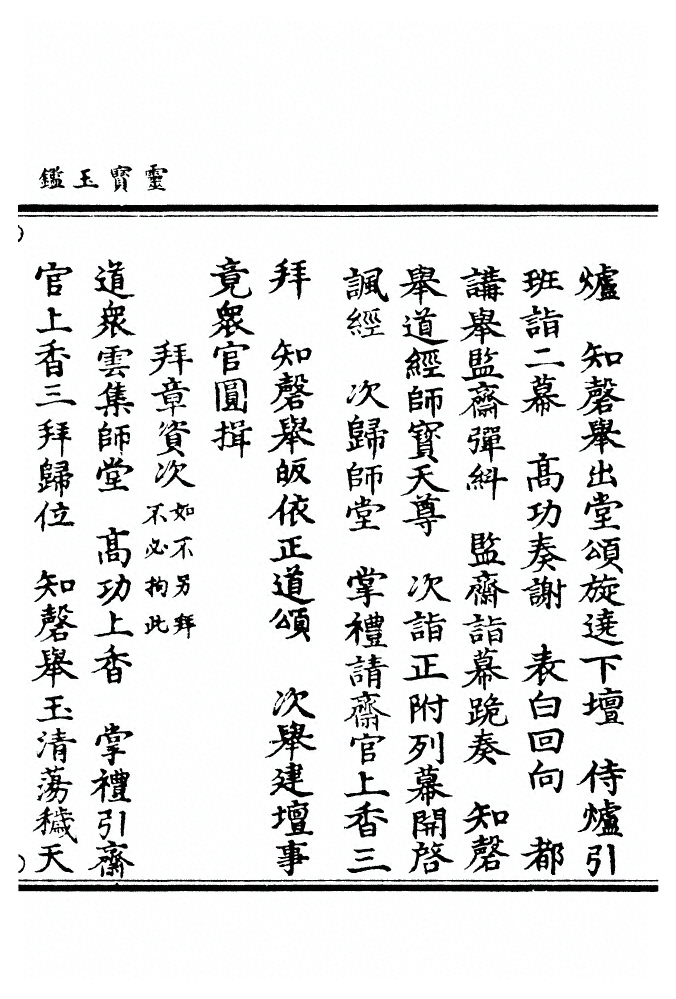 靈寳玉鑑
爐　知磬舉出堂頌旋遶下壇　侍爐引
班詣二幕　高功奏謝　表白回向　都
講舉監齋彈糾　監齋詣幕跪奏　知磬
舉道經師寳天尊　次詣正附列幕開啓
諷經　次歸師堂　掌禮請齋官上香三
拜　知磬舉皈依正道頌　次舉建壇事
竟衆官圓揖
拜章資次如不另拜不必拘此
道衆雲集師堂　高功上香　掌禮引齋
官上香三拜歸位　知磬舉玉清蕩穢天